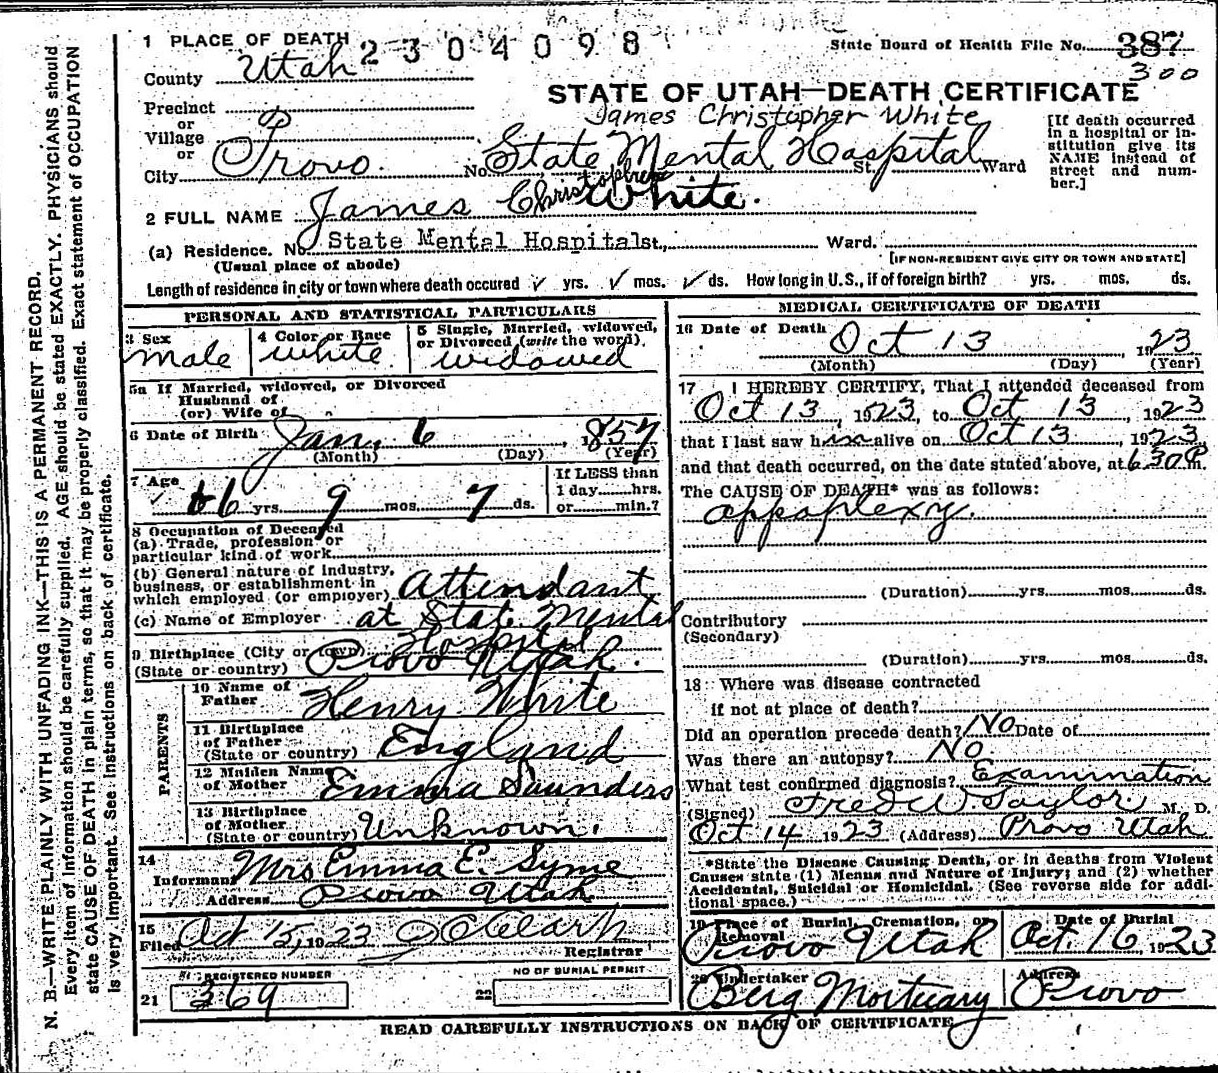 N. B.—WRITE PLAINLY WITH UNFADING INK—THIS IS A PERMANENT RECORD.
Every item of information should be carefully supplied. AGE should be stated EXACTLY. PHYSICIANS should
state CAUSE OF DEATH in plain terms, so that it may be properly classified. Exact statement of OCCUPATION
is very important. See instructions on back of certificate.
1 PLACE OF DEATH 2304098 State Board of Health File No. 387
County Utah 300
STATE OF UTAH—DEATH CERTIFICATE
Precinct
or
Village
or
City Provo. No. State Mental Hospital St. Ward
James Christopher White
[If death occurred
in a hospital or in-
stitution give its
NAME instead of
street and num-
ber.]
2 FULL NAME James Christopher White.
(a) Residence. No. State Mental Hospital St., Ward.
(Usual place of abode) [IF NON-RESIDENT GIVE CITY OR TOWN AND STATE]
Length of residence in city or town where death occured ✓ yrs. ✓ mos. ✓ ds. How long in U.S., if of foreign birth? yrs. mos. ds.
PERSONAL AND STATISTICAL PARTICULARS
3 Sex 4 Color or Race 5 Single, Married, widowed,
or Divorced (write the word).
male white widowed
5a If Married, widowed, or Divorced
Husband of
(or) Wife of
6 Date of Birth Jan. 6, 1857
(Month) (Day) (Year)
7 Age If LESS than
✓ 66 yrs. 9 mos. 7 ds. 1 day......hrs.
or......min.?
8 Occupation of Deceased
(a) Trade, profession or
particular kind of work
(b) General nature of industry,
business, or establishment in
which employed (or employer) Attendant
(c) Name of Employer at State Mental
Hospital
9 Birthplace (City or town) Provo Utah.
(State or country)
PARENTS
10 Name of
Father Henry White
11 Birthplace
of Father
(State or country) England
12 Maiden Name
of Mother Emma Saunders
13 Birthplace
of Mother
(State or country) Unknown.
14
Informant Mrs Emma E. Syme
Address Provo Utah
15
Filed Oct 15, 1923 Clark
Registrar
REGISTERED NUMBER NO OF BURIAL PERMIT
21 369 22
MEDICAL CERTIFICATE OF DEATH
16 Date of Death Oct 13 1923
(Month) (Day) (Year)
17 I HEREBY CERTIFY, That I attended deceased from
Oct 13, 1923, to Oct 13, 1923
that I last saw him alive on Oct 13, 1923,
and that death occurred, on the date stated above, at 630 P m.
The CAUSE OF DEATH* was as follows:
appoplexy.
(Duration)......yrs......mos......ds.
Contributory
(Secondary)
(Duration)......yrs......mos......ds.
18 Where was disease contracted
if not at place of death?
Did an operation precede death? No Date of
Was there an autopsy? No
What test confirmed diagnosis? Examination
(Signed) Fred W Taylor M. D.
Oct 14 1923 (Address) Provo Utah
*State the Disease Causing Death, or in deaths from Violent
Causes state (1) Menus and Nature of Injury; and (2) whether
Accidental, Suicidal or Homicidal. (See reverse side for addi-
tional space.)
19 Place of Burial, Cremation, or
Removal Date of Burial
Provo Utah Oct. 16, 1923
20 Undertaker Address
Berg Mortuary Provo
READ CAREFULLY INSTRUCTIONS ON BACK OF CERTIFICATE